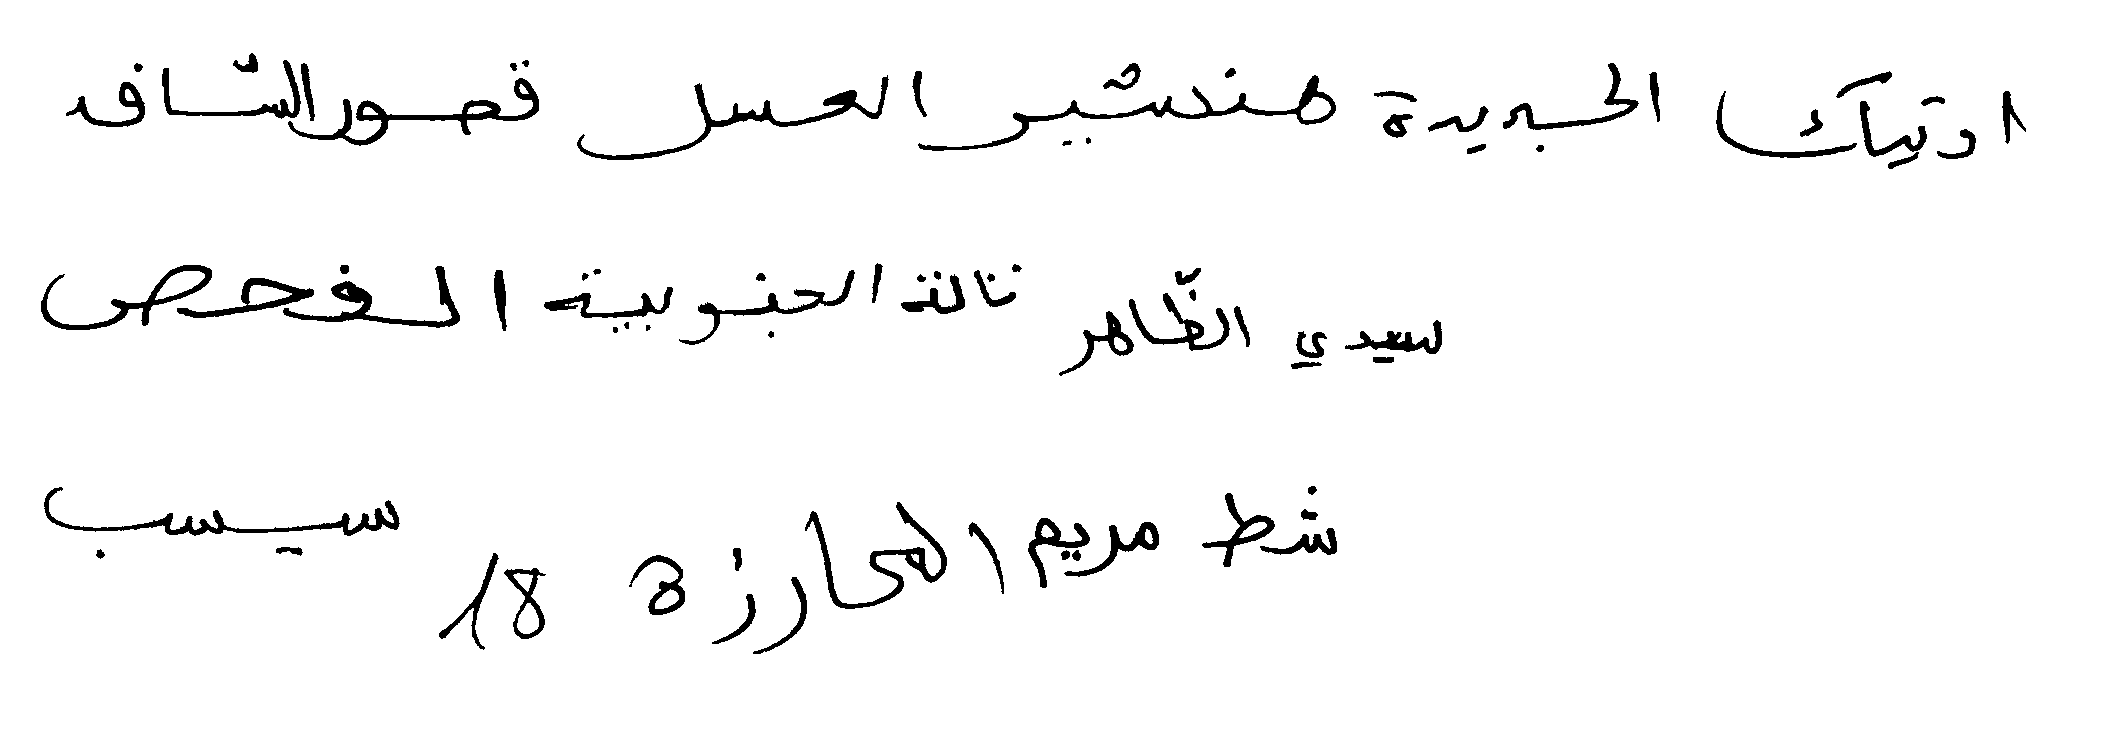 اوتيك الجديدة هنشير العسل قصور السّاف
سيدي الظّاهر تالة الجنوبية الفحص
شط مريم المحارزة 18 سيسب